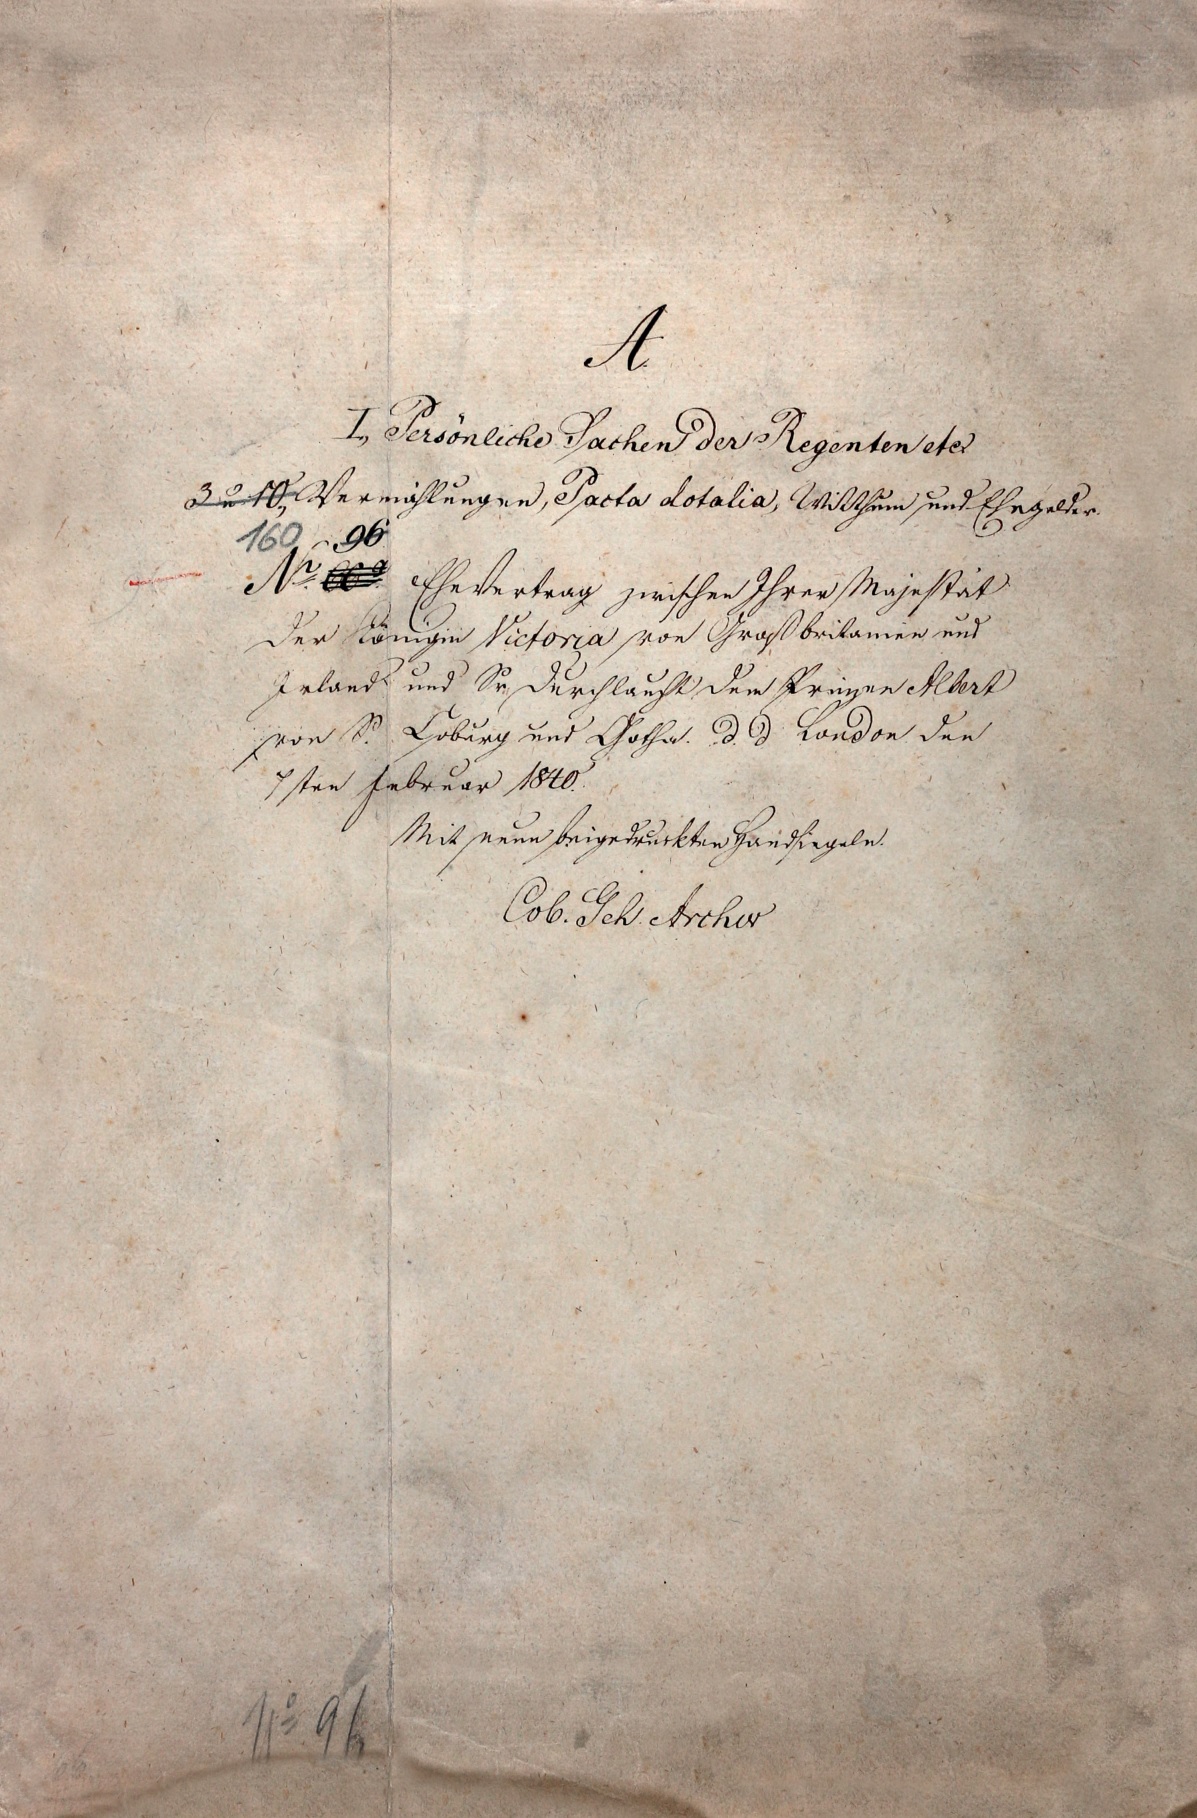 A.
I, Persönliche Sachen der Regenten etc
3 u 10, Vermählungen, Pacta dotalia, Witthum und Ehegelder.
160 96
Nr. Ehevertrag zwischen Ihrer Majestät
der Königin Victoria von Großbritanien und
Irland und Sr. Durchlaucht dem Prinzen Albert
von S. Coburg und Gotha. d. d. London den
7ten Februar 1840.
Mit neun beigedruckten Handsiegeln.
Cob. Geh. Archiv
No 96